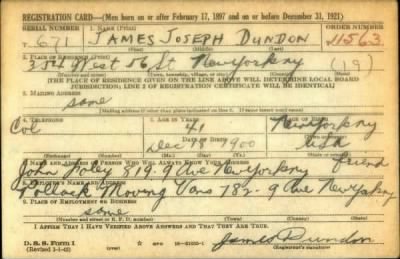 REGISTRATION CARD—(Men born on or after February 17, 1897 and on or before December 31, 1921)
SERIAL NUMBER 1. NAME (Print) ORDER NUMBER
T 671 JAMES JOSEPH DUNDON 11563
(First) (Middle) (Last)
2. PLACE OF RESIDENCE (Print)
354 West 56 St New York ny (19)
(Number and street) (Town, township, village, or city) (County) (State)
[THE PLACE OF RESIDENCE GIVEN ON THE LINE ABOVE WILL DETERMINE LOCAL BOARD
JURISDICTION; LINE 2 OF REGISTRATION CERTIFICATE WILL BE IDENTICAL]
3. MAILING ADDRESS
same
[Mailing address if other than place indicated on line 2. If same insert word same]
4. TELEPHONE 5. AGE IN YEARS 6. PLACE OF BIRTH
Col 41 New York ny
DATE OF BIRTH (Town or county)
Dec 18 1900 USA
(Exchange) (Number) (Mo.) (Day) (Yr.) (State or country)
7. NAME AND ADDRESS OF PERSON WHO WILL ALWAYS KNOW YOUR ADDRESS
John Foley 819-9 Ave New York ny friend
8. EMPLOYER'S NAME AND ADDRESS
Pollack Moving Vans 782-9 Ave New York ny
9. PLACE OF EMPLOYMENT OR BUSINESS
same
(Number and street or R. F. D. number) (Town) (County) (State)
I AFFIRM THAT I HAVE VERIFIED ABOVE ANSWERS AND THAT THEY ARE TRUE.
D. S. S. Form 1
(Revised 1-1-42) (over) GPO James Dundon
(Registrant's signature)